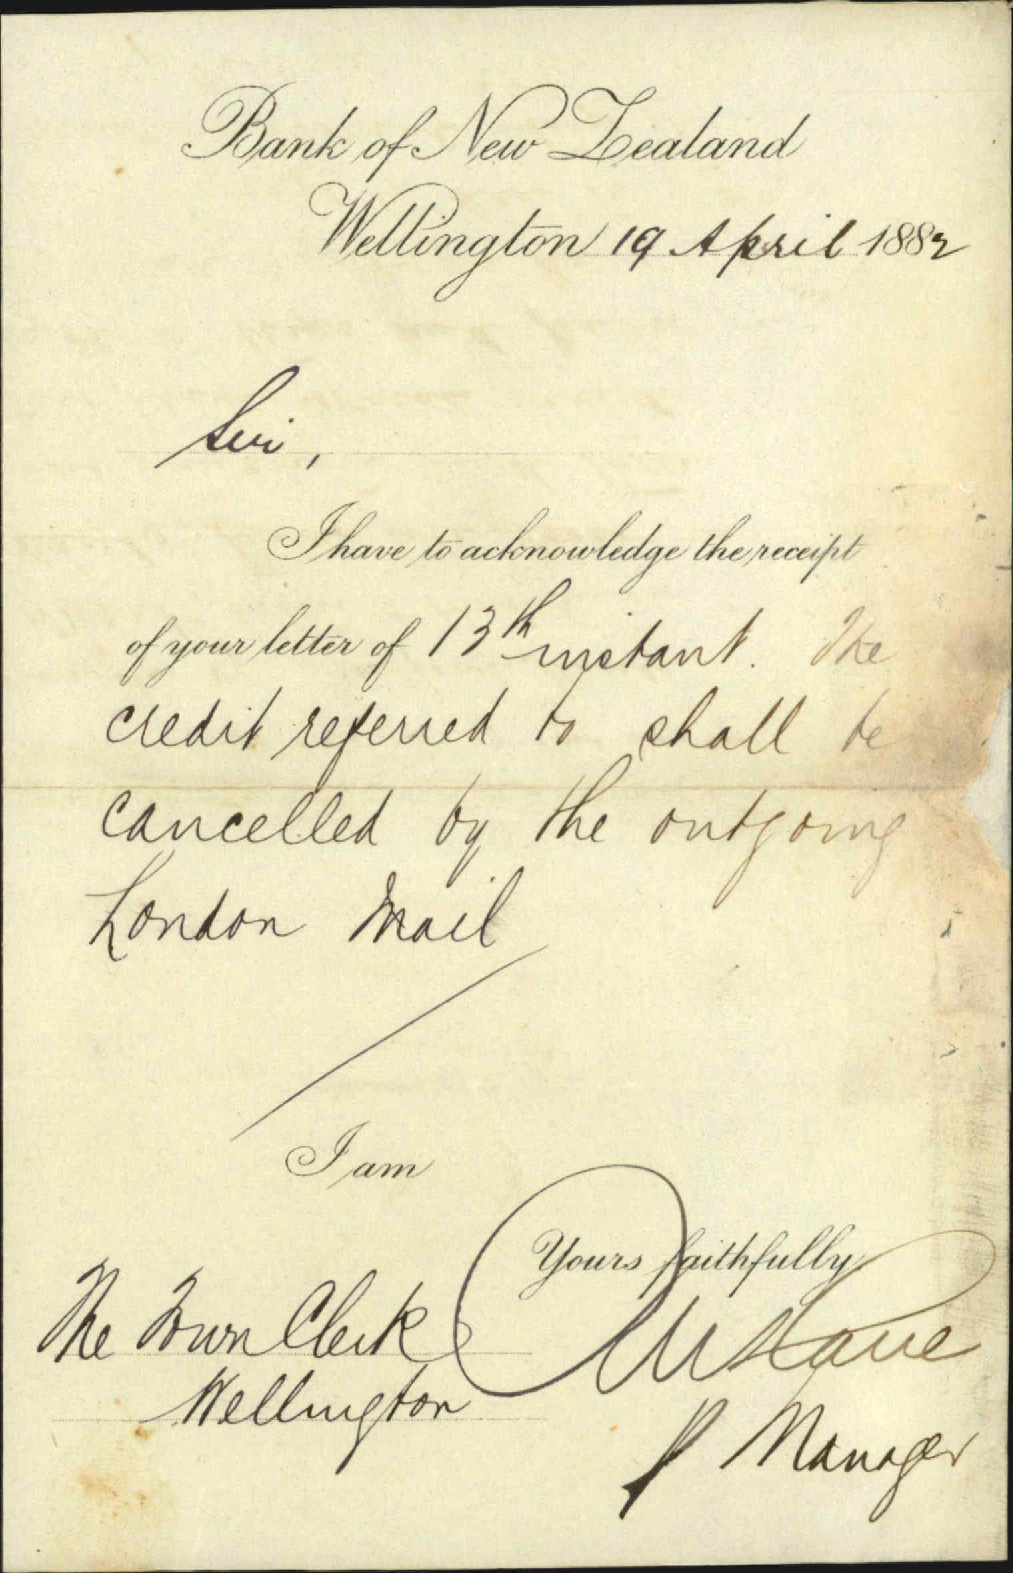 Bank of New Zealand
Wellington 19 April 1882
Sir,
I have to acknowledge the receipt
of your letter of 13th instant. The
credit referred to shall be
cancelled by the outgoing
London Mail
I am
Yours faithfully
The Town Clerk
Wellington
p Manager